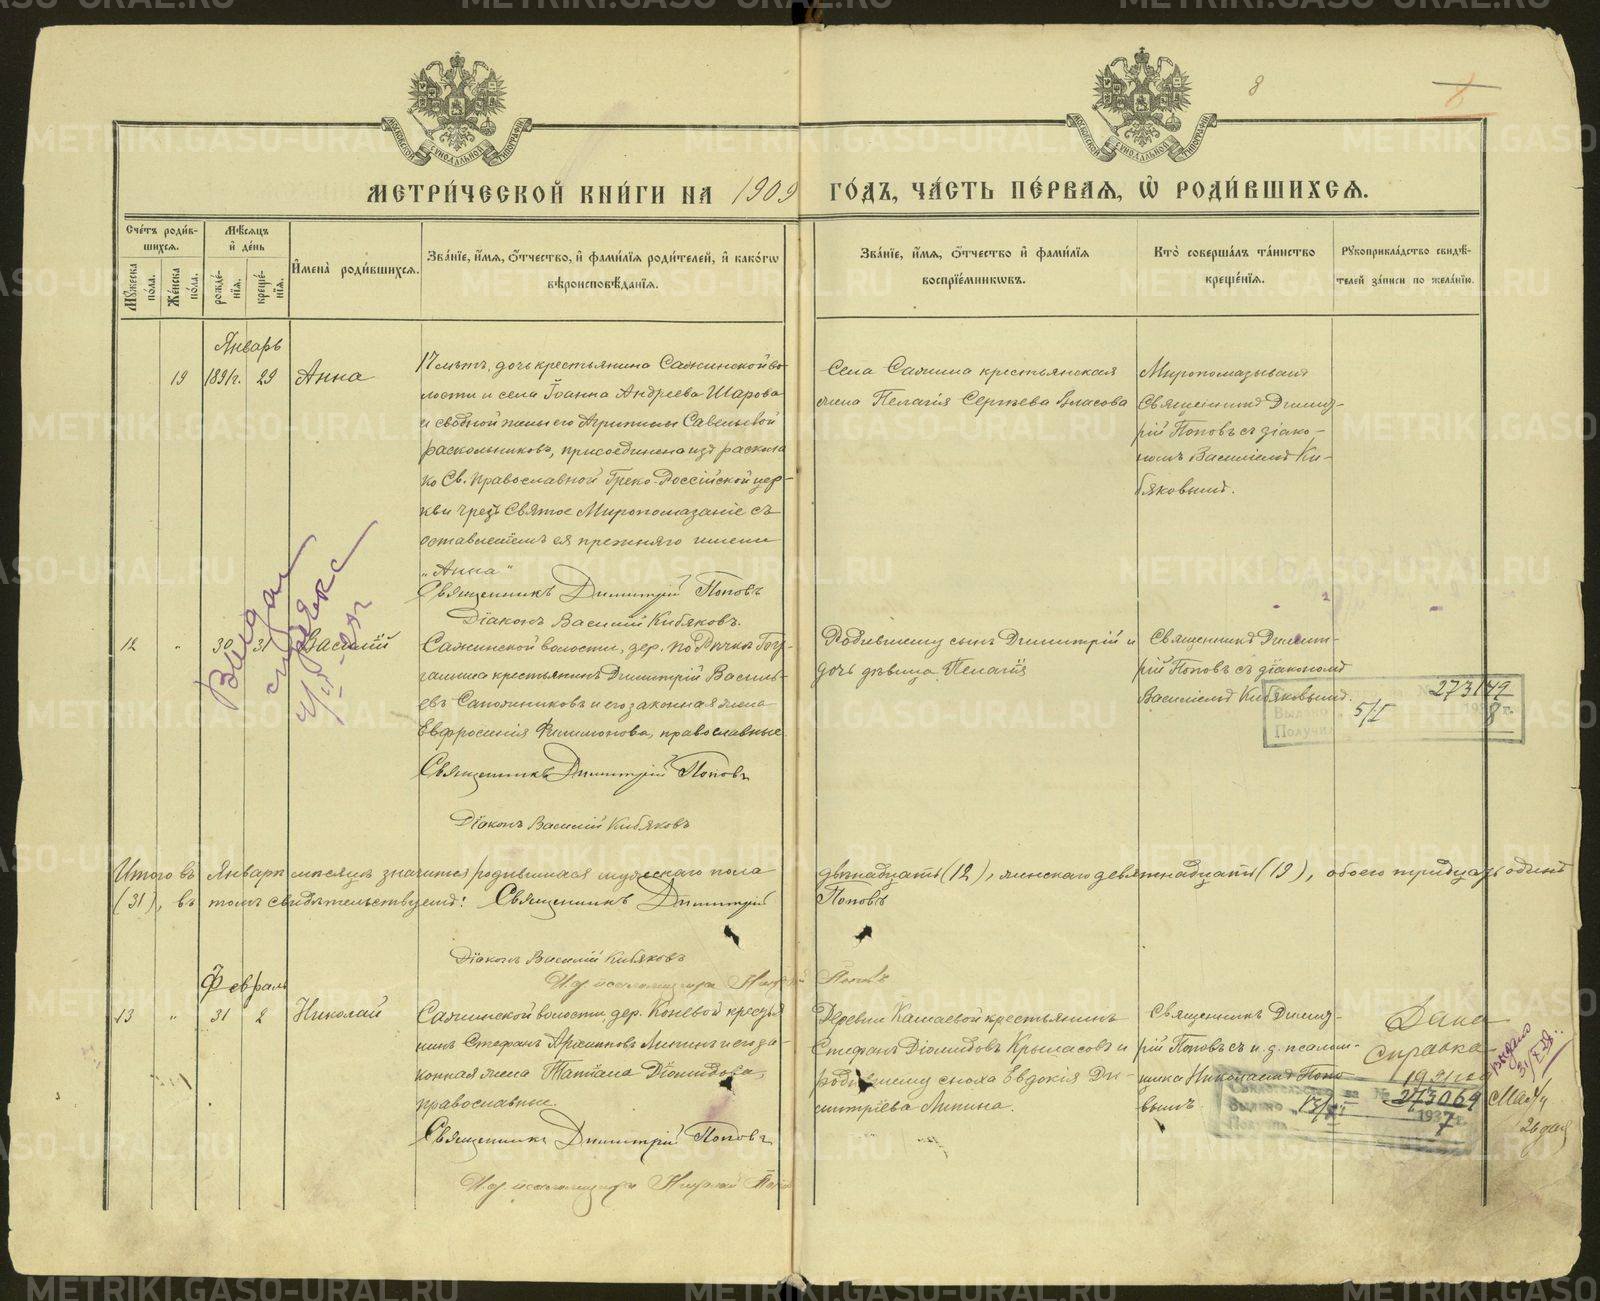 8
МОСКОВСКОЙ СѴНОДАЛЬНОЙ ТИПОГРАФІИ
МОСКОВСКОЙ СѴНОДАЛЬНОЙ ТИПОГРАФІИ
МЕТРИ́ЧЕСКОЙ КНИ́ГИ НА 1909 ГО́ДЪ, ЧА́СТЬ ПЕ́РВАЯ, Ѽ РОДИ́ВШИХСЯ.
Сче́тъ роди́в-
шихся.
Му́жеска
по́ла.
Же́нска
по́ла.
Мѣ́сяцъ
и҆ де́нь
рожде́-
нія.
креще́-
нія.
И҆мена̀ роди́вшихся.
Зва́ніе, и҆́мя, ѻ҆́тчество, и҆ фами́лія роди́телей, и҆ како́гѡ
вѣроисповѣ́данія.
Зва́ніе, и҆́мя, ѻ҆́тчество и҆ фами́лія
воспріе́мникѡвъ.
Кто̀ соверша́лъ та́инство
креще́нія.
Рꙋкоприкла́дство свидѣ́-
телей за́писи по жела́нію.
Январь
19 1891г. 29 Анна
17 лѣтъ, дочь крестьянина Сажинской во-
лости и села Іоанна Андреева Шарова
и сводной жены его Агрипины Савельевой
раскольниковъ, присоединена изъ раскола
ко Св. Православной Греко-Россійской цер-
кви чрезъ Святое Миропомазаніе съ
оставленіемъ ея прежняго имени
„Анна“
Священникъ Димитрій Поповъ
Діаконъ Василій Кибяковъ.
Села Сажина крестьянская
жена Пелагія Сергѣева Власова
Миропомазывалъ
Священникъ Димит-
рій Поповъ съ діако-
номъ Василіемъ Ки-
бяковымъ.
12 „ 30 31 Василій
Сажинской волости, дер. по Рѣчкѣ
крестьянинъ Димитрій Василь-
евъ Сапожниковъ и его законная жена
Евфросинія Филимонова, православные
Священникъ Димитрій Поповъ
Діаконъ Василій Кибяковъ
Родившему сынъ Димитрій и
дочь дѣвица Пелагія
Священникъ Димит-
рій Поповъ съ діакономъ
Василіемъ Кибяковымъ.
Выдан
справка
273149
Выдано 5/I 1938 г.
Получил
Итого въ Январѣ мѣсяцѣ значится родившихся мужского пола двѣнадцать (12), женскаго девятнадцать (19), обоего тридцать одинъ
(31), въ томъ свидѣтельствуемъ: Священникъ Димитрій Поповъ
Діаконъ Василій Кибяковъ
И.д. псаломщика Николай Поповъ
Февраль
13 „ 31 2 Николай
Сажинской волости дер. Коневой крестья-
нинъ Стефанъ Архиповъ Липинъ и его за-
конная жена Татіана Діомидова,
православные.
Священникъ Димитрій Поповъ
И.д. псаломщика Николай Попов
Деревни Камаевой крестьянинъ
Стефанъ Діомидовъ Крыласовъ и
родившему сноха Евдокія Ди-
митріева Липина.
Священникъ Димит-
рій Поповъ съ и. д. псалом-
щика Николаемъ Попо-
вымъ.
Дана
справка
1931 год
Мая
26 дня
Выдано
31/X
№ 273064
Выдано 1937 г.